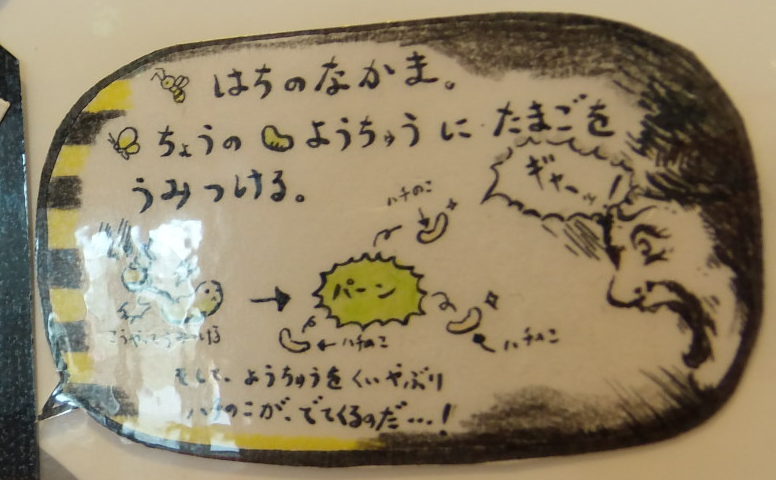 はちのなかま。
ちょうの ようちゅうに たまごを
うみつける。
ギャーッ!
ハチのこ
パーン
ハチのこ
ハチのこ
そして、ようちゅうをくいやぶり
ハチのこが、でてくるのだ…!